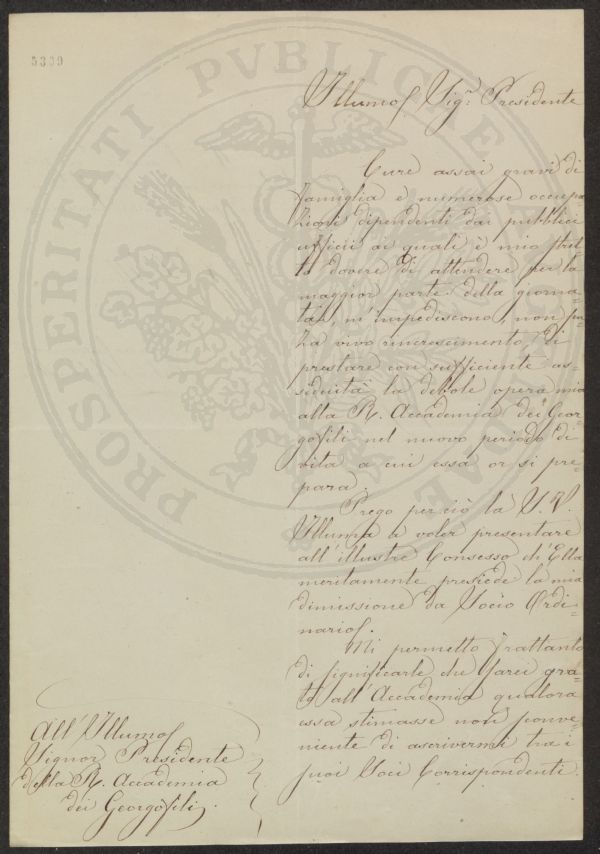 5309
PROSPERITATI PVBLICAE
Illumo Sigr. Presidente
Cure assai gravi di
famiglia e numerose occupa=
zioni dipendenti dai pubblici
ufficii ai quali è mio stret=
to dovere di attendere per la
maggior parte della giorna=
ta, m'impediscono, non sen=
za vivo rincrescimento, di
prestare con sufficiente as=
siduità la debole opera mia
alla R. Accademia dei Geor=
gofili nel nuovo periodo di
vita a cui essa or si pre=
para.
Prego perciò la S.V.
Illuma a voler presentare
all'illustre Consesso ch'Ella
meritamente presiede la mia
dimissione da Socio Ordi=
nario.
Mi permetto frattanto
di significarle che sarei gra=
to all'Accademia qualora
essa stimasse non sconve=
niente di ascrivermi tra i
suoi Soci Corrispondenti.
All'Illumo
Signor Presidente
della R. Accademia
dei Georgofili.